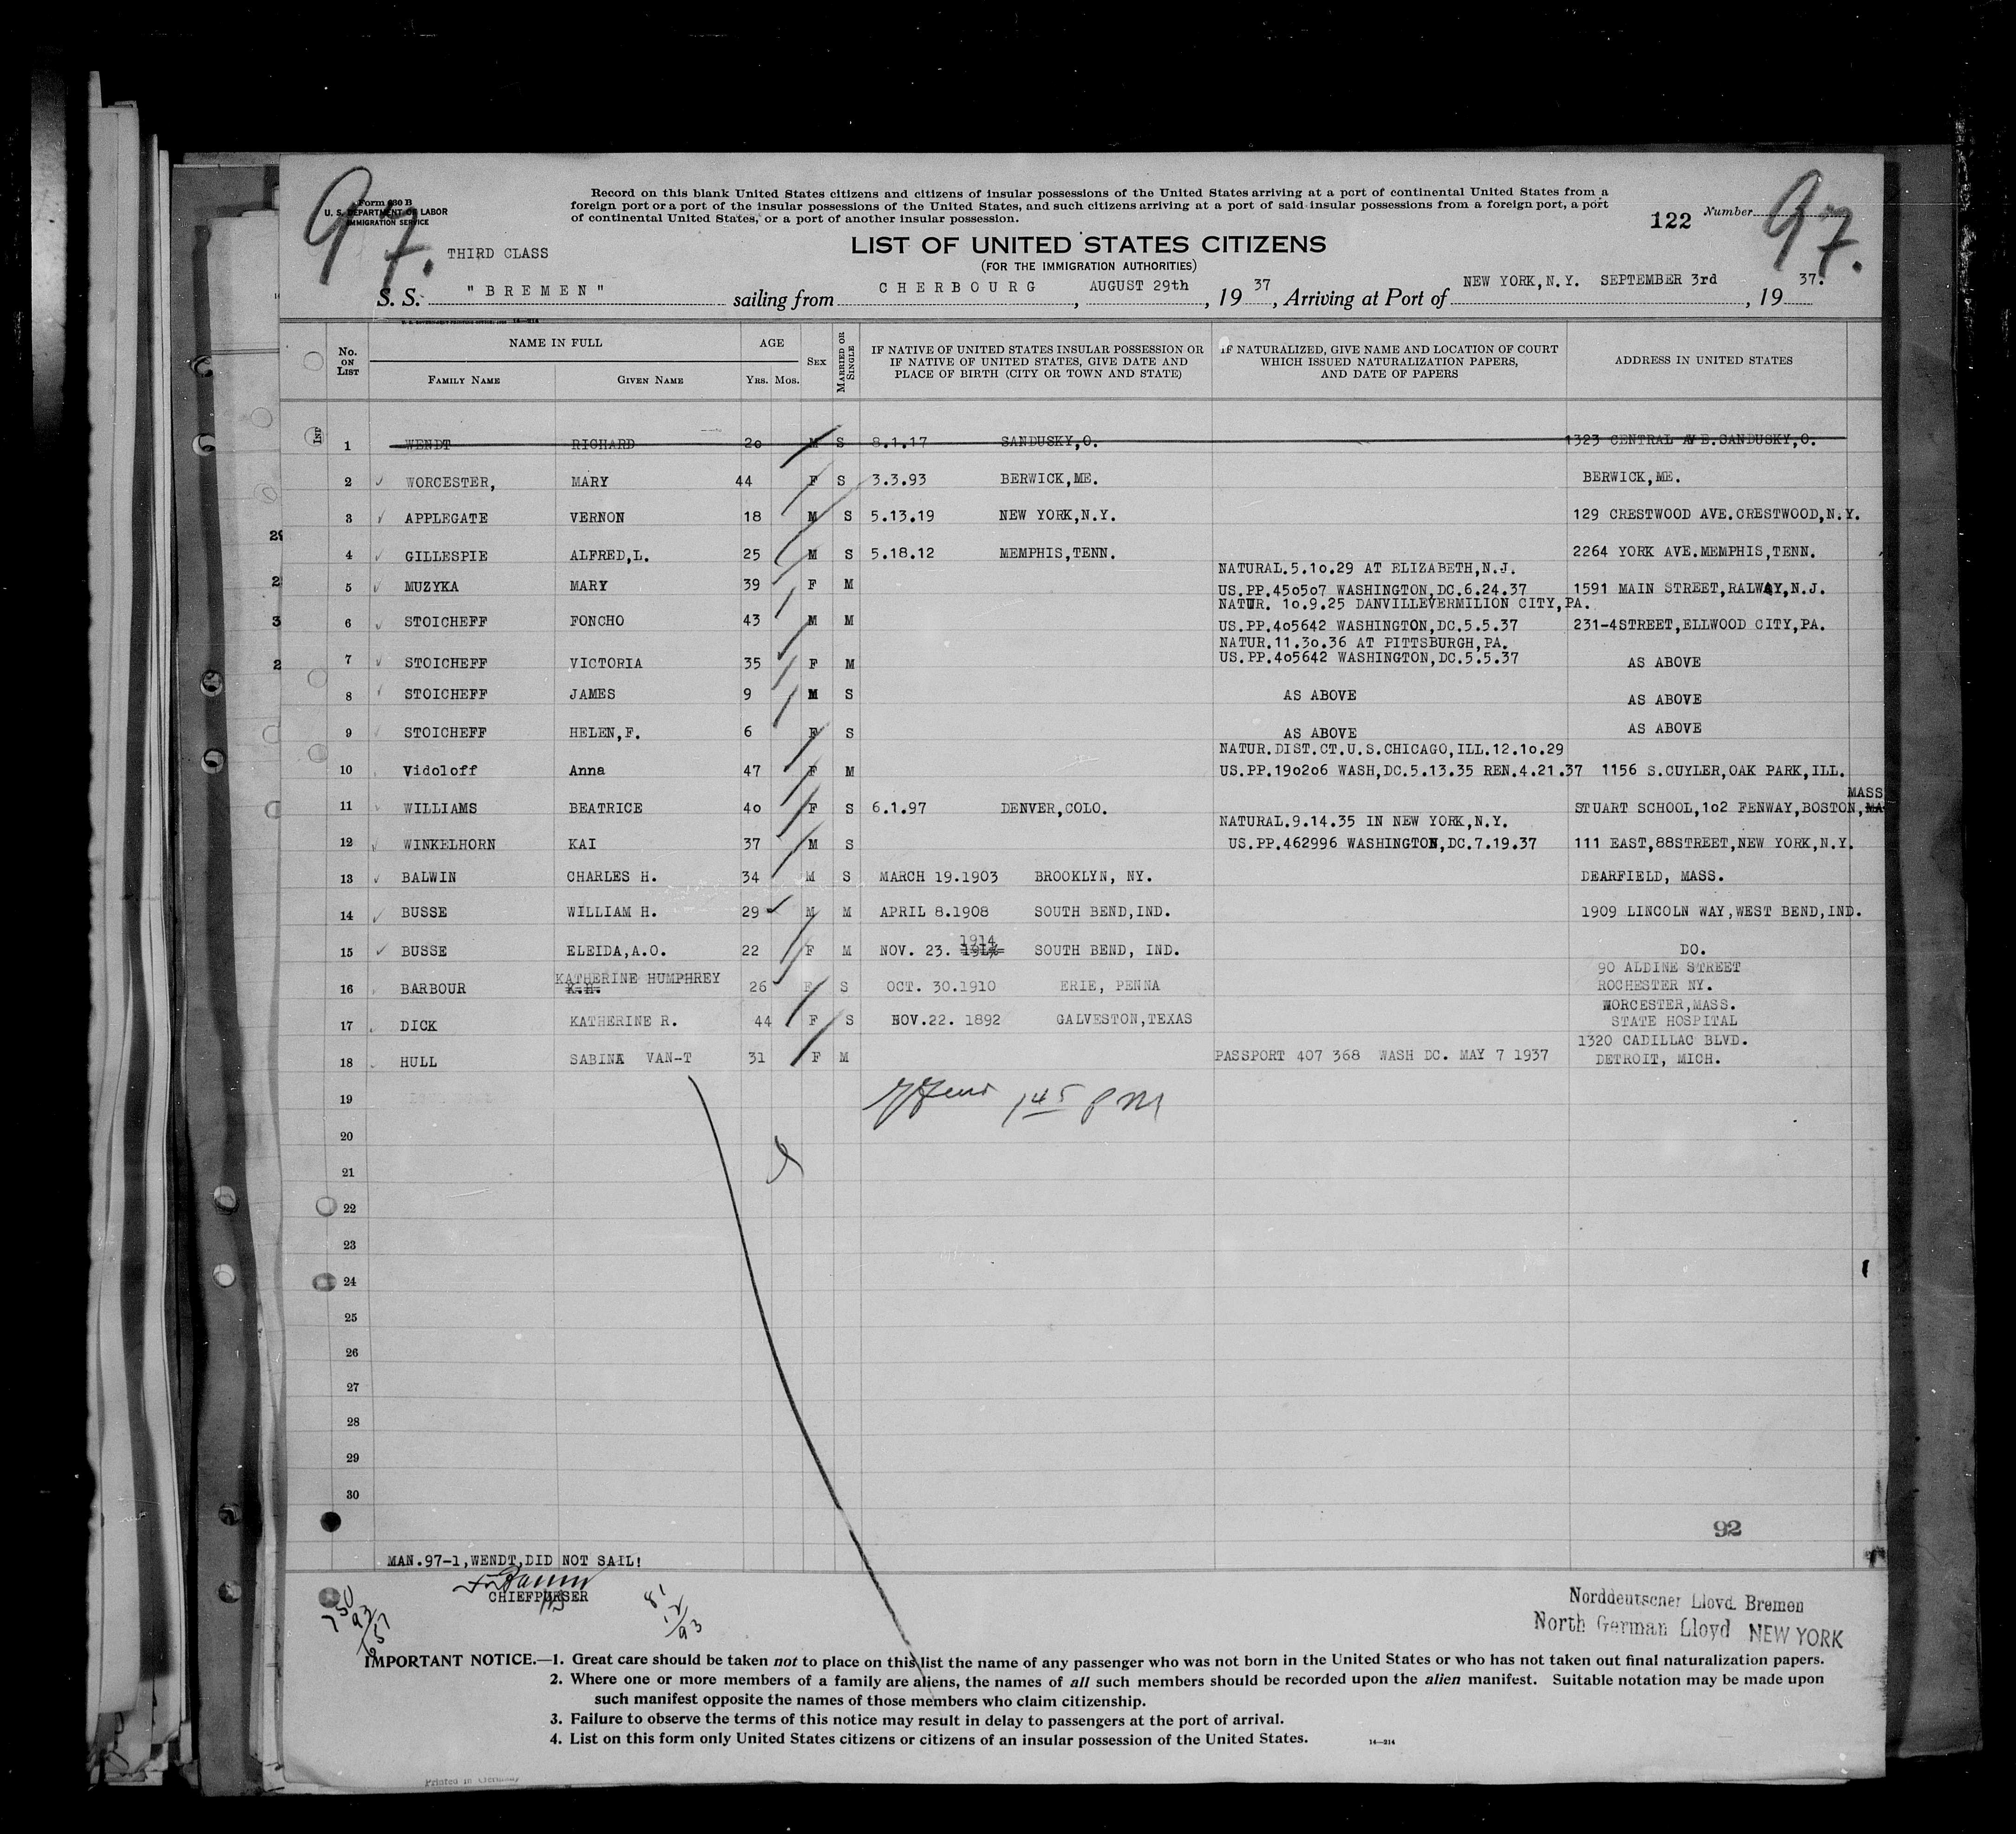 97.
Form 630 B
U. S. DEPARTMENT OF LABOR
IMMIGRATION SERVICE
Record on this blank United States citizens and citizens of insular possessions of the United States arriving at a port of continental United States from a
foreign port or a port of the insular possessions of the United States, and such citizens arriving at a port of said insular possessions from a foreign port, a port
of continental United States, or a port of another insular possession.
122 Number 97.
THIRD CLASS
LIST OF UNITED STATES CITIZENS
(FOR THE IMMIGRATION AUTHORITIES)
S. S. "BREMEN" sailing from CHERBOURG, AUGUST 29th, 19 37, Arriving at Port of NEW YORK,N.Y. SEPTEMBER 3rd, 19 37.
No. ON LIST
NAME IN FULL
FAMILY NAME GIVEN NAME
AGE
YRS. MOS.
SEX
MARRIED OR SINGLE
IF NATIVE OF UNITED STATES INSULAR POSSESSION OR
IF NATIVE OF UNITED STATES, GIVE DATE AND
PLACE OF BIRTH (CITY OR TOWN AND STATE)
IF NATURALIZED, GIVE NAME AND LOCATION OF COURT
WHICH ISSUED NATURALIZATION PAPERS,
AND DATE OF PAPERS
ADDRESS IN UNITED STATES
1 WENDT RICHARD 20 M S 8.1.17 SANDUSKY,O. 1323 CENTRAL AVE.SANDUSKY,O.
2 WORCESTER, MARY 44 F S 3.3.93 BERWICK,ME. BERWICK,ME.
3 APPLEGATE VERNON 18 M S 5.13.19 NEW YORK,N.Y. 129 CRESTWOOD AVE.CRESTWOOD,N.Y.
4 GILLESPIE ALFRED,L. 25 M S 5.18.12 MEMPHIS,TENN. 2264 YORK AVE.MEMPHIS,TENN.
NATURAL.5.10.29 AT ELIZABETH,N.J.
5 MUZYKA MARY 39 F M US.PP.450507 WASHINGTON,DC.6.24.37 1591 MAIN STREET,RALWAY,N.J.
NATUR. 10.9.25 DANVILLEVERMILION CITY,PA.
6 STOICHEFF FONCHO 43 M M US.PP.405642 WASHINGTON,DC.5.5.37 231-4STREET,ELLWOOD CITY,PA.
NATUR.11.30.36 AT PITTSBURGH,PA.
7 STOICHEFF VICTORIA 35 F M US.PP.405642 WASHINGTON,DC.5.5.37 AS ABOVE
8 STOICHEFF JAMES 9 M S AS ABOVE AS ABOVE
9 STOICHEFF HELEN,F. 6 F S AS ABOVE AS ABOVE
NATUR.DIST.CT.U.S.CHICAGO,ILL.12.10.29
10 Vidoloff Anna 47 F M US.PP.190206 WASH,DC.5.13.35 REN.4.21.37 1156 S.CUYLER,OAK PARK,ILL.
MASS
11 WILLIAMS BEATRICE 40 F S 6.1.97 DENVER,COLO. STUART SCHOOL,102 FENWAY,BOSTON,MA
NATURAL.9.14.35 IN NEW YORK,N.Y.
12 WINKELHORN KAI 37 M S US.PP.462996 WASHINGTON,DC.7.19.37 111 EAST,88STREET,NEW YORK,N.Y.
13 BALWIN CHARLES H. 34 M S MARCH 19.1903 BROOKLYN, NY. DEARFIELD, MASS.
14 BUSSE WILLIAM H. 29 M M APRIL 8.1908 SOUTH BEND,IND. 1909 LINCOLN WAY,WEST BEND,IND.
15 BUSSE ELEIDA,A.O. 22 F M NOV. 23. 1914 SOUTH BEND, IND. DO.
KATHERINE HUMPHREY 90 ALDINE STREET
16 BARBOUR K.H. 26 F S OCT. 30.1910 ERIE, PENNA ROCHESTER NY.
WORCESTER,MASS.
17 DICK KATHERINE R. 44 F S NOV.22. 1892 GALVESTON,TEXAS STATE HOSPITAL
1320 CADILLAC BLVD.
18 HULL SABINA VAN-T 31 F M PASSPORT 407 368 WASH DC. MAY 7 1937 DETROIT, MICH.
19 145 PM
20
21
22
23
24
25
26
27
28
29
30
92
MAN.97-1,WENDT,DID NOT SAIL!
CHIEFPURSER
750
93
657
81
12
93
Norddeutscher Lloyd Bremen
North German Lloyd NEW YORK
IMPORTANT NOTICE.—1. Great care should be taken not to place on this list the name of any passenger who was not born in the United States or who has not taken out final naturalization papers.
2. Where one or more members of a family are aliens, the names of all such members should be recorded upon the alien manifest. Suitable notation may be made upon
such manifest opposite the names of those members who claim citizenship.
3. Failure to observe the terms of this notice may result in delay to passengers at the port of arrival.
4. List on this form only United States citizens or citizens of an insular possession of the United States.
14—214
Printed in Germany